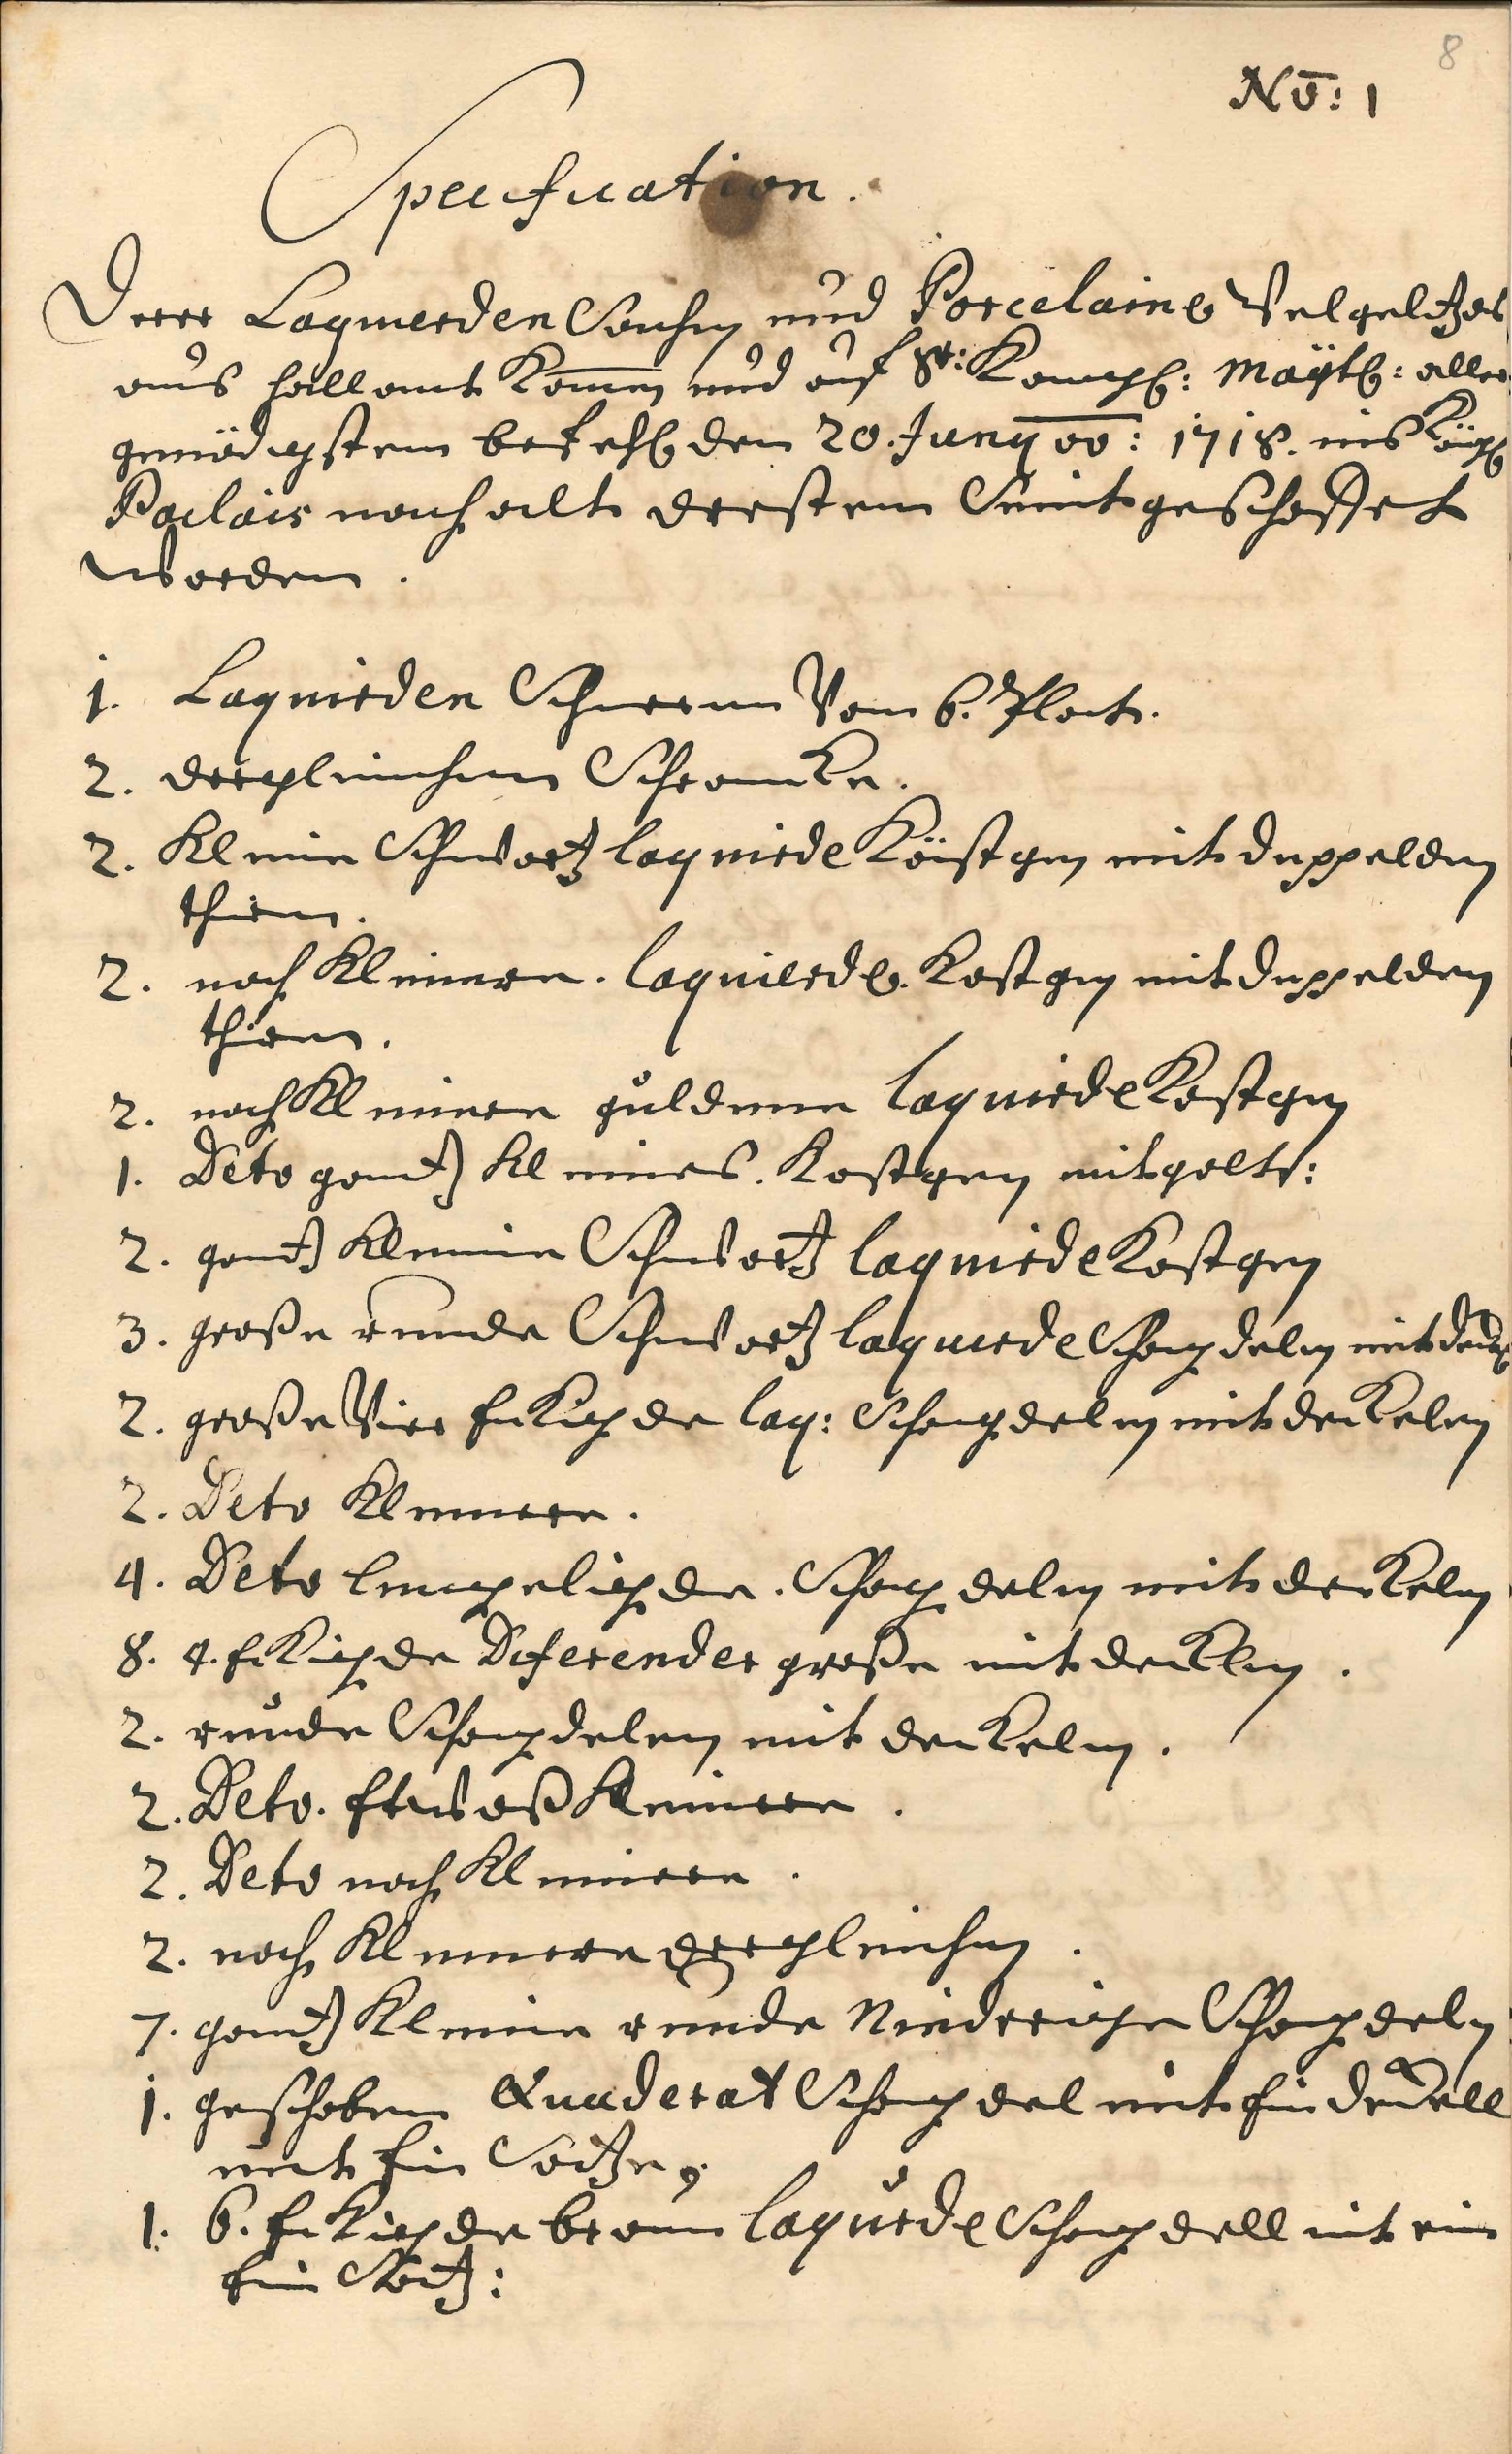 8
No: 1
Specification.
Derer Laquierden Sachen und Porcelaine
auß Hollant Komen und auf Sr: Königl: Mayt: aller
gnädigstem befehl den 20. Juny ao: 1718. ins Königl
Paclais nach alt Dresten
worden.
1. Laquirden Schirm Von 6. Plat.
2. dergleichen Schrancke.
2. Kleine Schwartz laquirde Kästgen mit duppelden
thiren.
2. noch Kleinere. laquierde. Kastgen mit duppelden
thiren.
2. noch Kleinere guldene laquirde Kastgen
1. Deto gantz Kleines. Kastgen mit golt:
2. gantz Kleine Schwartz laquirde Kastgen
3. große runde Schwartz laquirde Schagdeln mit
2. große Vier Eckigde laq: Schagdeln mit deckelen
2. Deto Kleinere.
4. Deto lengeligde. Schagdeln mit deckeln
8. 4. Eckigde Diferender große mit deckeln.
2. runde Schagdelen mit deckeln.
2. Deto. Etwaß Kleinere.
2. Deto noch Kleinere.
2. noch Kleinere dergleichen.
7. gantz Kleine runde Niedrige Schagdeln
1. geschoben Quaderat Schagdel mit Ein deckell
mit Ein Satze,
1. 6. Eckigde braun laquirde Schagdell mit ein
Ein Satz: